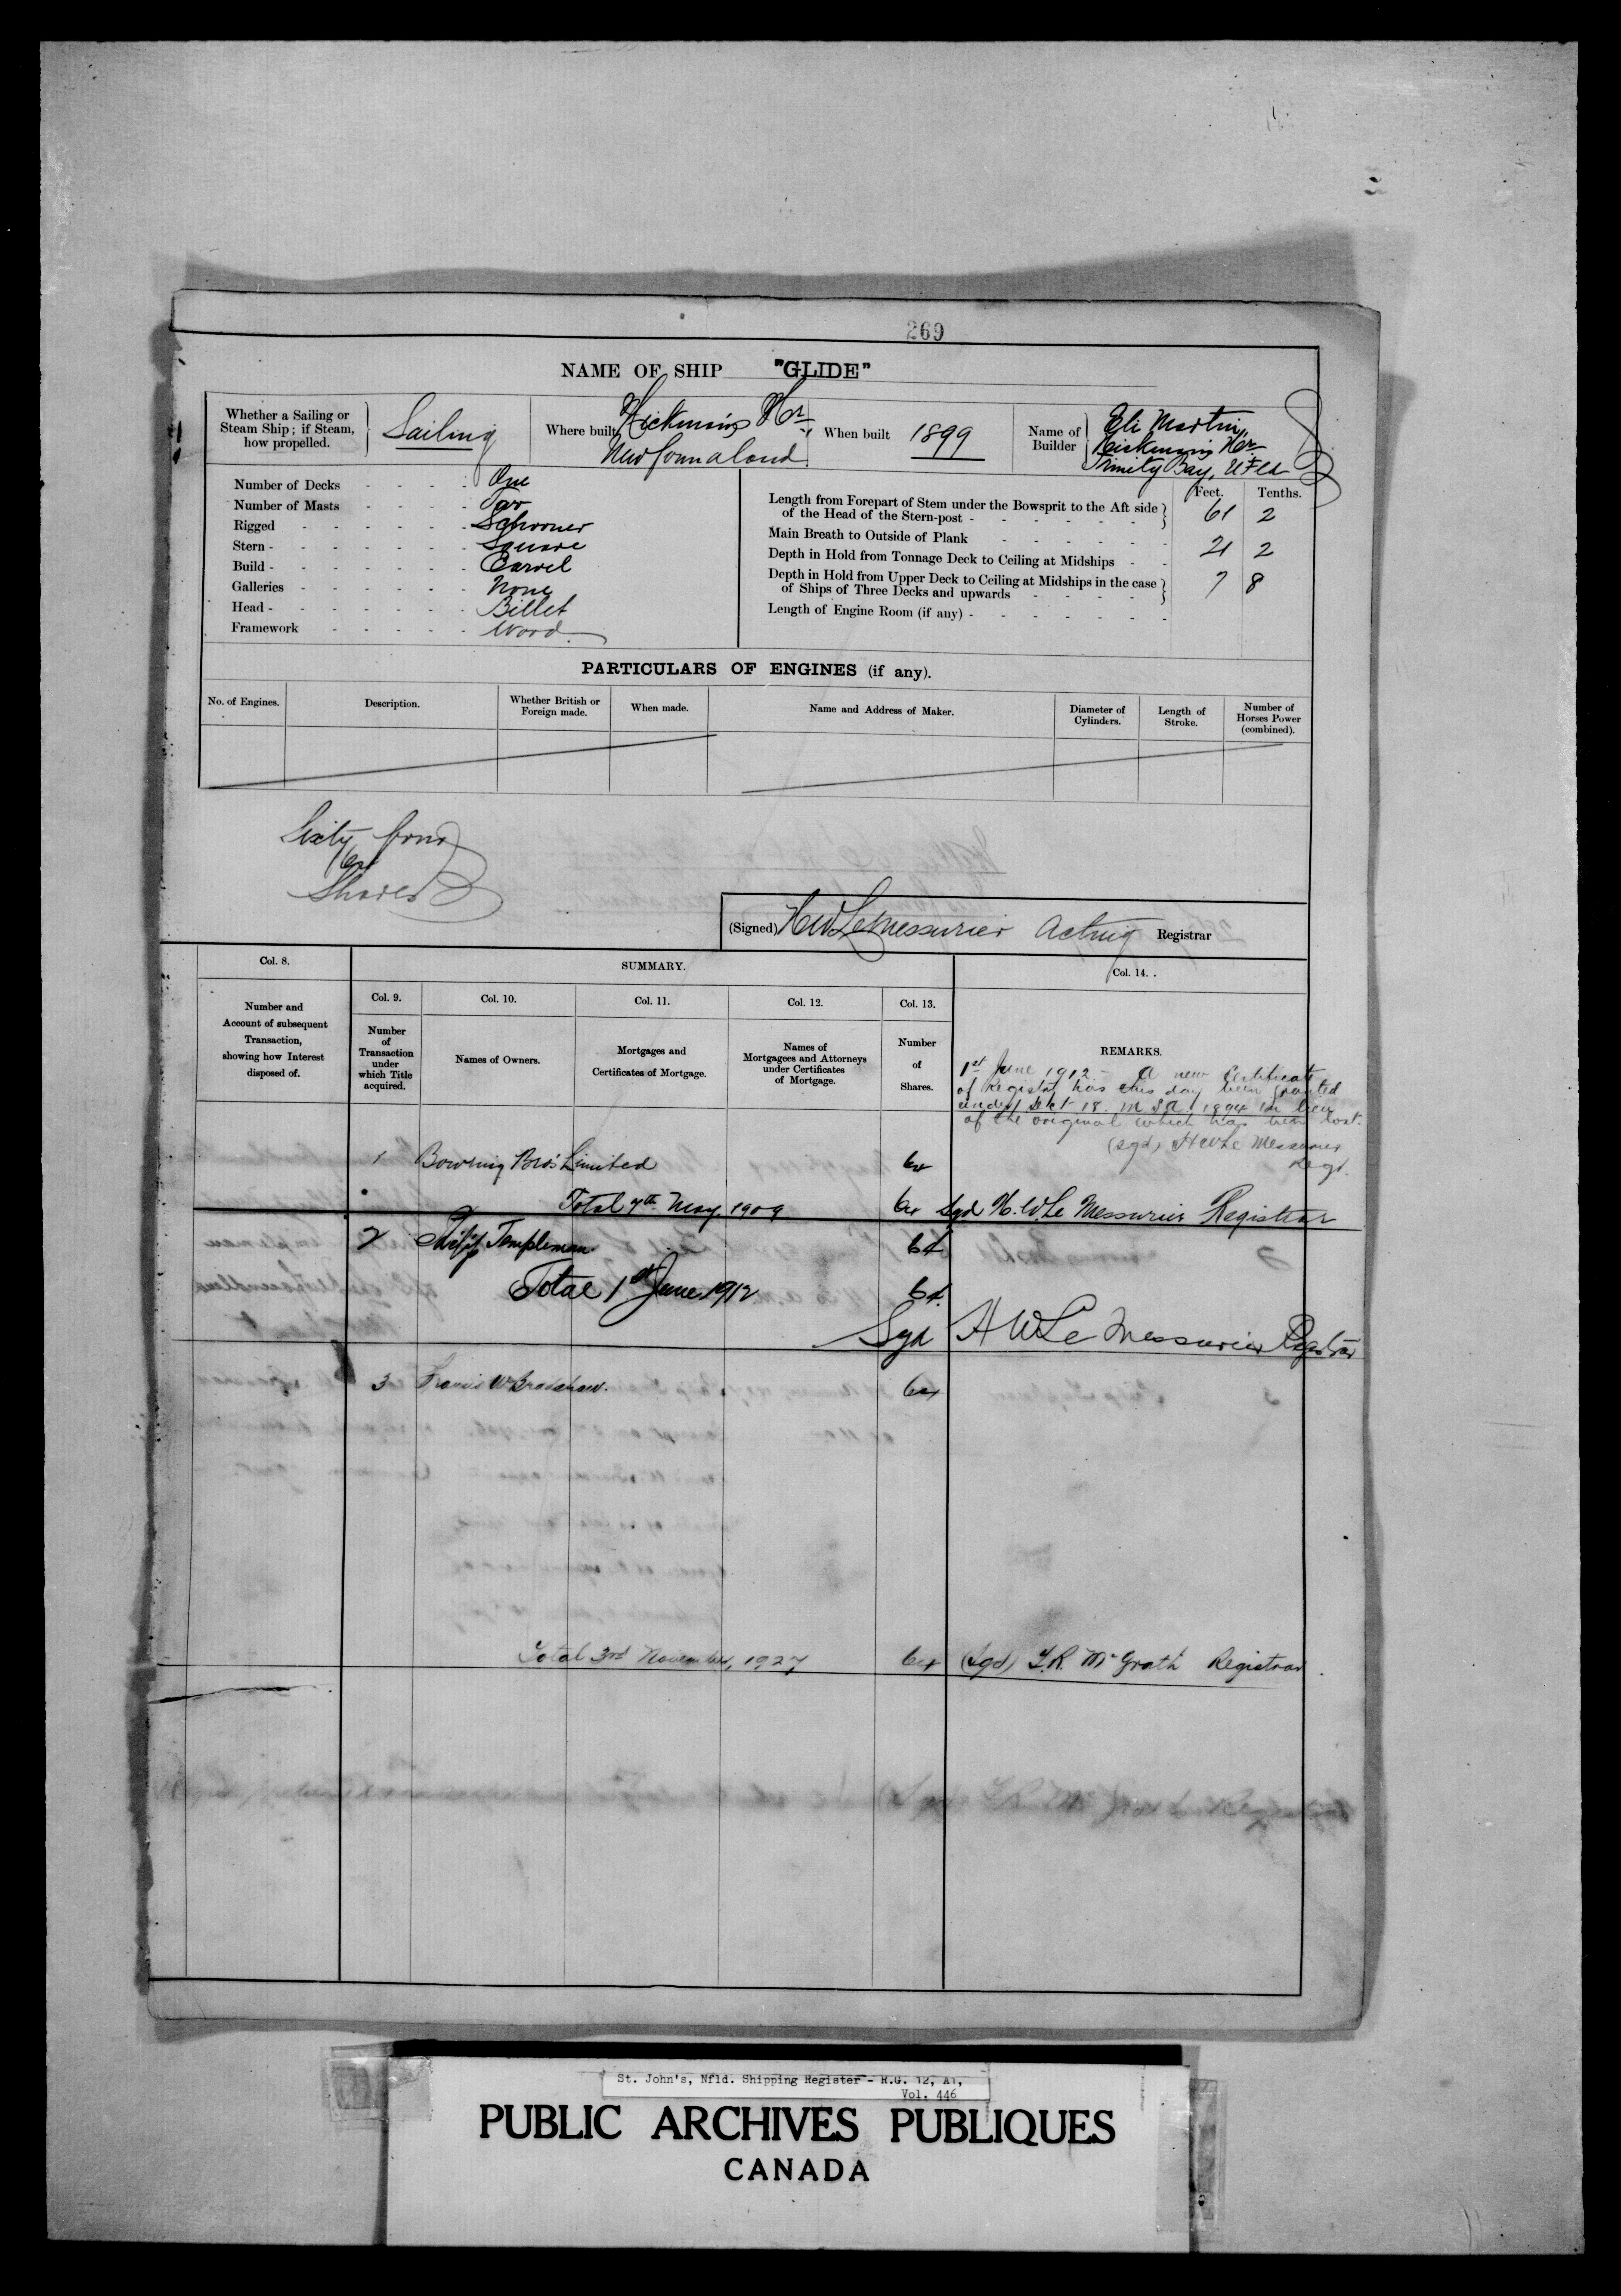 269
NAME OF SHIP "GLIDE"
Whether a Sailing or Steam Ship; if Steam, how propelled. Sailing
Where built Hickman's Hr. Newfoundland
When built 1899
Name of Builder Eli Martin, Hickman's Hr. Trinity Bay, NFld
Number of Decks - - - - One
Number of Masts - - - - Two
Rigged - - - - - - Schooner
Stern - - - - - - - Square
Build - - - - - - - Carvel
Galleries - - - - - - None
Head - - - - - - - Billet
Framework - - - - - Wood
Feet. Tenths.
Length from Forepart of Stem under the Bowsprit to the Aft side
of the Head of the Stern-post - - - - - - - 61 2
Main Breath to Outside of Plank - - - - - - 21 2
Depth in Hold from Tonnage Deck to Ceiling at Midships - -
Depth in Hold from Upper Deck to Ceiling at Midships in the case
of Ships of Three Decks and upwards - - - - - 7 8
Length of Engine Room (if any) - - - - - - -
PARTICULARS OF ENGINES (if any).
No. of Engines. Description. Whether British or Foreign made. When made. Name and Address of Maker. Diameter of Cylinders. Length of Stroke. Number of Horses Power (combined).
Sixty four
64
Shares
(Signed) H W LeMessurier Acting Registrar
Col. 8. SUMMARY. Col. 14.
Col. 9. Col. 10. Col. 11. Col. 12. Col. 13.
Number and Account of subsequent Transaction, showing how Interest disposed of.
Number of Transaction under which Title acquired.
Names of Owners.
Mortgages and Certificates of Mortgage.
Names of Mortgagees and Attorneys under Certificates of Mortgage.
Number of Shares.
REMARKS.
1st June 1912. - A new Certificate
of Regist. has this day been granted
under Sect 18 M S A 1894 in lieu
of the original which has been lost.
(sgd) H W Le Messurier
Regr.
1 Bowring Bros Limited 64
Total 7th May 1909 64 Sgd H. W. Le Messurier Registrar
2 Philip Templeman 64
Total 1st June 1912 64
Sgd H W Le Messurier Registrar
3 Francis W Bradshaw. 64
Total 3rd November, 1927 64 (Sgd) T. R. McGrath Registrar
St. John's, Nfld. Shipping Register - R.G. 12, A1,
Vol. 446
PUBLIC ARCHIVES PUBLIQUES
CANADA